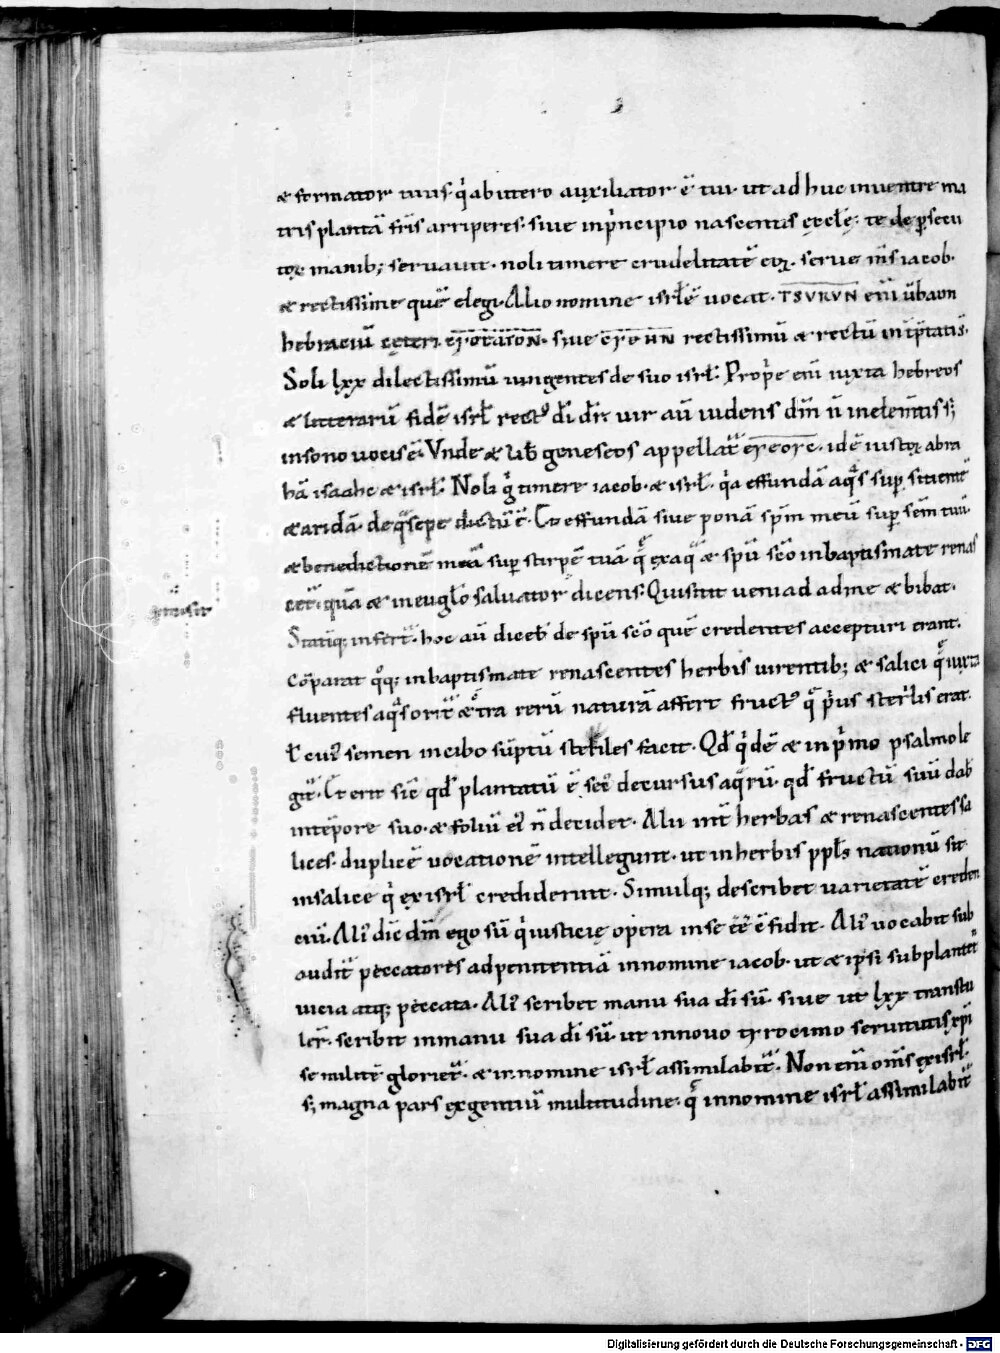 & formator tuus· q̓ ab utero auxiliator· ē tui· ut adhuc in uentre ma
tris plantā fr̄is arriperes· siue in p̓ncipio nascentis ęcclę̄· te de ꝑsecu
toꝝ manib; seruauit· noli timere crudelitatē eoꝝ· serue m̄s iacob·
& rectissime quē elegi· Alio nomine isrl̄ē uocat· TSVRVN eni ū
hebraeiū cęteri siue rectissimū & rectū in īp̄tatis·
Soli lxx dilectissimū iungentes de suo isrl̄· Proprie eni iuxta hebreos
& litterarū fidē isrl̄ rect⁹ dī dr̄· uir aū uidens dm̄ n̄ in elem̄tis s;
in sono uocis ē· Vnde & lib̄ geneseos appellat̄ idē iustoꝝ abra
hā isaahc & isrl̄· Noli g̓ timere iacob· & isrl̄· q̓a effundā aq̄s suꝑ sitientē
& aridā· de q̄ sepe dictū ē· Et effundā siue ponā sp̄m meū suꝑ sem̄ tuū·
& benedictionē meā suꝑ stirpē tuā q̄ ex aq̄ & sp̄u sc̄o in baptismate renas
cet̄· quā & in euglo saluator dicens· Qui sitit ueniad ad me & bibat·
Statiq; infert̄· hoc aū diceb̄ de sp̄u sc̄o quē credentes accepturi erant·
Cōparat q̊q; in baptismate renascentes herbis uirentib; & salici q̄ iuxta
fluentes aq̄s orit̄ & t̄ra rerū naturā affert fruct⁹ q̄ p̓us sterilis erat·
ł cui⁹ semen in cibo sūptū steriles facit· Qd̄ q̓dē & in p̓mo psalmo le
git̄· Et erit sic̄ qd̄ plantatū ē sec̄ decursus aq̄rū· qd̄ fructū suū dab̄
in tēpore suo· & foliū ei⁹ n̄ decidet· Alii int̄ herbas & renascentes sa
lices· duplicē uocationē intellegunt· ut in herbis ppl̄s nationū sit
in salice q̓ ex isrl̄ crediderunt· Simulq; describet uarietatē creden
tiū· Ali⁹ dic̄ dn̄i ego sū q̓ iusticię opera in se ēē c̄fidit· Ali⁹ uocabit sub
audit̄ peccatores ad penitentiā in nomine iacob· ut & ipsi subplantēt
uicia atq; peccata· Ali⁹ scribet manu sua dī sū· siue ut lxx transtu
ler̄· scribit in manu sua dī sū· ut in nouo tyrocinio seruitutis xp̄i
se militē gloriet̄· & in nomine isrl̄ assimilabit̄· Non enī om̄s ex isrl̄·
s; magna pars ex gentiū multitudine· q̄ in nomine isrl̄ assimilabit̄
Digitalisierung gefördert durch die Deutsche Forschungsgemeinschaft - DFG